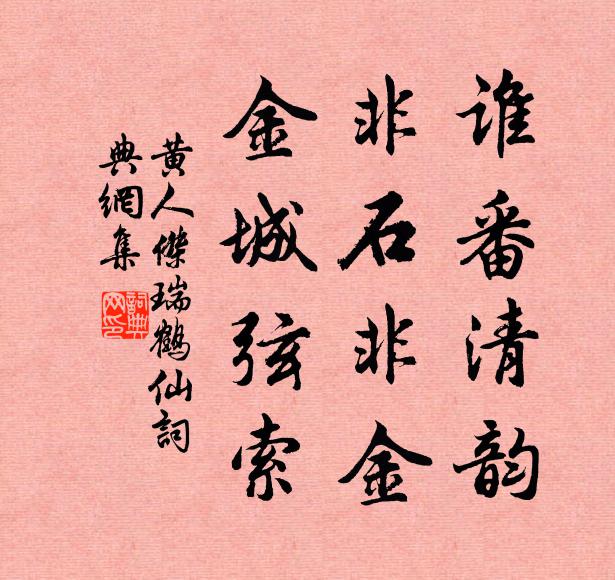 谁番清韵
非石非金
金城弦索
黄人傑瑞鶴仙詞
典網集
詞典
网印